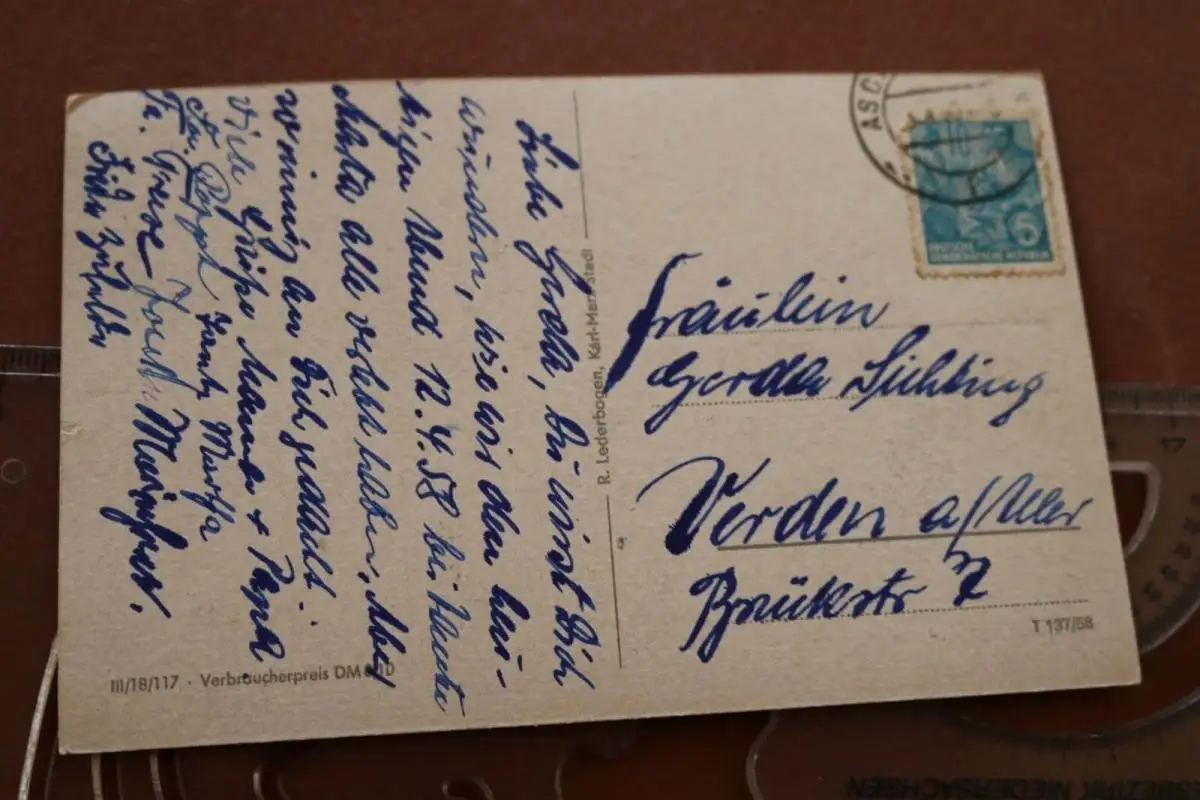 Liebe Gerda, Du wirst Dich
wundern, wie wir den heu-
tigen Abend 12.4.58 bei Tante
Marta alle verlebt haben. Aber
wenning an Dich gedacht.
Viele Grüße Mama + Papa
Tante Martha
Fa.
R. Lederbogen, Karl-Marx-Stadt
III/18/117 · Verbraucherpreis DM 0,10
ASC
5
DEUTSCHE
DEMOKRATISCHE REPUBLIK
Fräulein
Gerda Lichting
Verden a/Aller
Brückstr 7
T 137/58
17
BEZIRK NIEDERSACHSEN